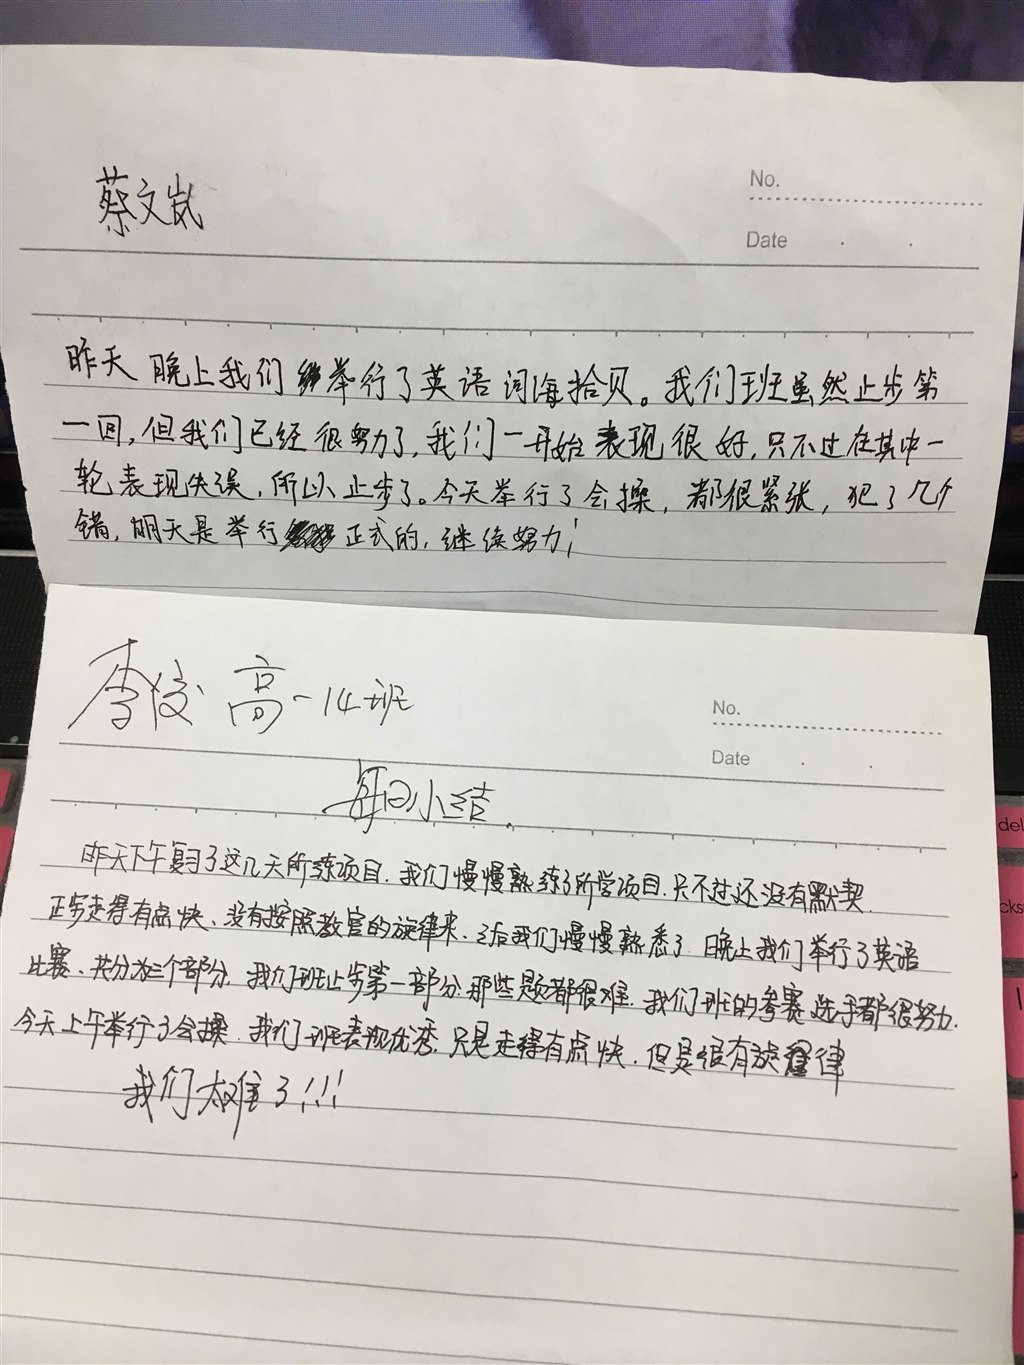 蔡文岚
No.
Date
昨天晚上我们举行了英语词海拾贝。我们班虽然止步第
一回,但我们已经很努力了,我们一开始表现很好,只不过在其中一
轮表现失误,所以止步了。今天举行了会操,都很紧张,犯了几个
错,明天是举行正式的,继续努力!
李俊 高一14班
No.
Date
每日小结.
昨天下午复习了这几天所练项目.我们慢慢熟练了所学项目.只不过还没有默契.
正步走得有点快、没有按照教官的旋律来.之后我们慢慢熟悉了.晚上我们举行了英语
比赛、共分为三个部分.我们班止步第一部分.那些题都很难.我们班的参赛选手都很努力.
今天上午举行了会操.我们班表现优秀.只是走得有点快.但是很有旋律
我们太难了!!!
del
cks